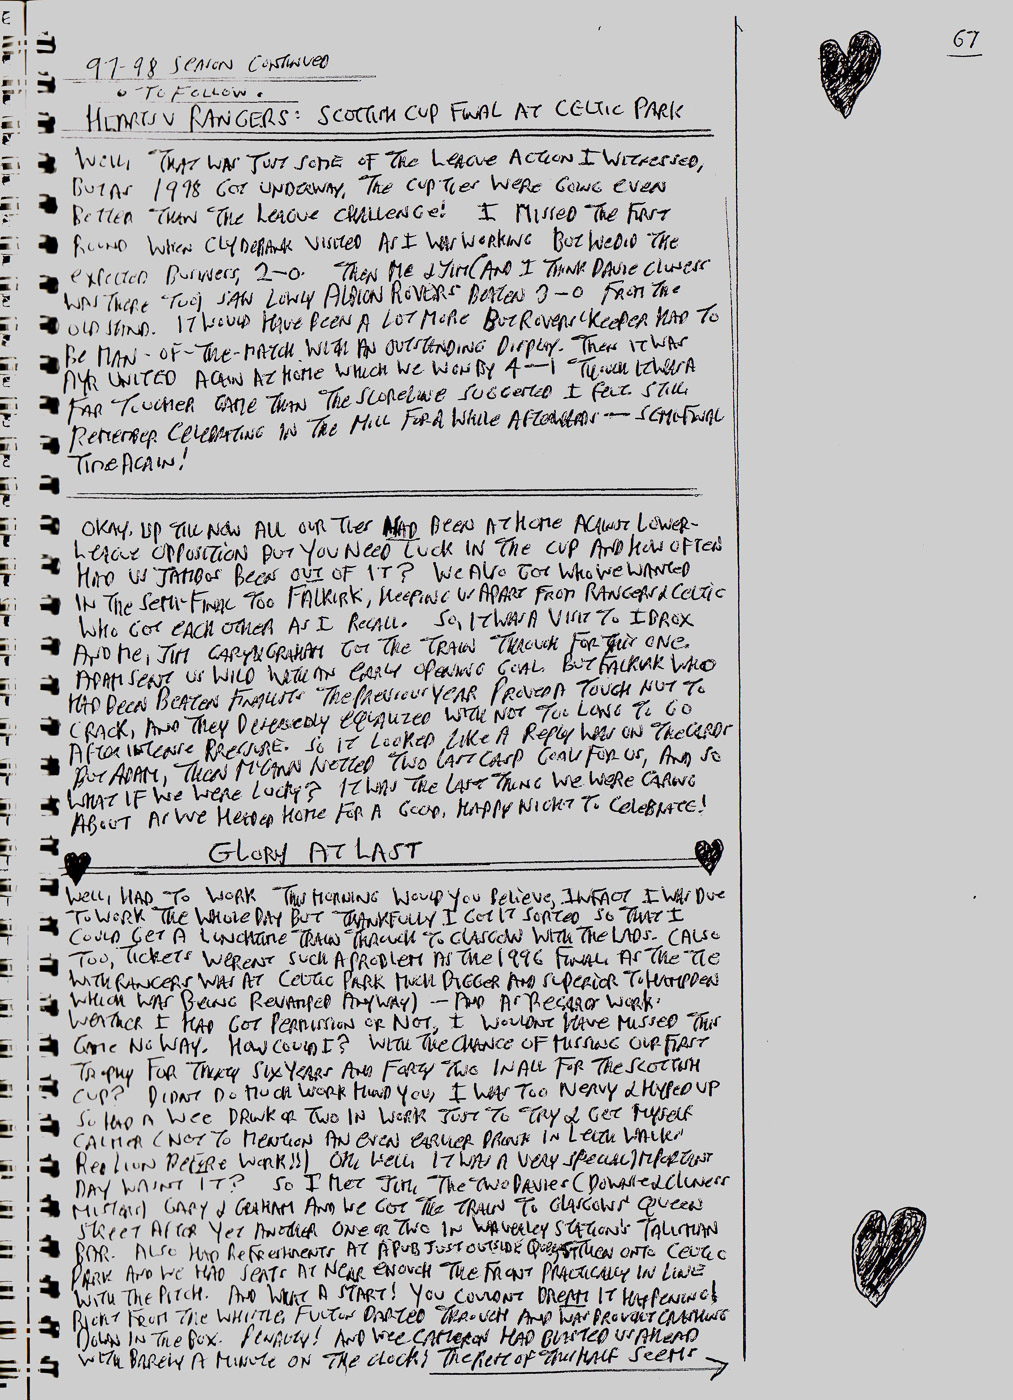 67
97-98 SEASON CONTINUED
TO FOLLOW.
HEARTS V RANGERS: SCOTTISH CUP FINAL AT CELTIC PARK
WELL, THAT WAS JUST SOME OF THE LEAGUE ACTION I WITNESSED,
BUT AS 1998 GOT UNDERWAY, THE CUP TIES WERE GOING EVEN
BETTER THAN THE LEAGUE CHALLENGE! I MISSED THE FIRST
ROUND WHEN CLYDEBANK VISITED AS I WAS WORKING BUT WE DID THE
EXPECTED BUSINESS, 2-0. THEN ME & JIM (AND I THINK DAVIE CLUNESS
WAS THERE TOO) SAW LOWLY ALBION ROVERS BEATEN 3-0 FROM THE
OLD STAND. IT WOULD HAVE BEEN A LOT MORE BUT ROVERS' KEEPER HAD TO
BE MAN-OF-THE-MATCH WITH AN OUTSTANDING DISPLAY. THEN IT WAS
AYR UNITED AGAIN AT HOME WHICH WE WON BY 4-1 THOUGH IT WAS A
FAR TOUGHER GAME THAN THE SCORELINE SUGGESTED I FELT. STILL
REMEMBER CELEBRATING IN THE MILL FOR A WHILE AFTERWARDS — SEMI-FINAL
TIME AGAIN!
OKAY, UP TILL NOW ALL OUR TIES HAD BEEN AT HOME AGAINST LOWER-
LEAGUE OPPOSITION BUT YOU NEED LUCK IN THE CUP AND HOW OFTEN
HAD US JAMBOS BEEN OUT OF IT? WE ALSO GOT WHO WE WANTED
IN THE SEMI-FINAL TOO FALKIRK, KEEPING US APART FROM RANGERS & CELTIC
WHO GOT EACH OTHER AS I RECALL. SO, IT WAS A VISIT TO IBROX
AND ME, JIM GARY & GRAHAM GOT THE TRAIN THROUGH FOR THIS ONE.
ADAM SENT US WILD WITH AN EARLY OPENING GOAL. BUT FALKIRK WHO
HAD BEEN BEATEN FINALISTS THE PREVIOUS YEAR PROVED A TOUGH NUT TO
CRACK, AND THEY DESERVEDLY EQUALIZED WITH NOT TOO LONG TO GO
AFTER INTENSE PRESSURE. SO IT LOOKED LIKE A REPLAY WAS ON THE CARDS
BUT ADAM, THEN McCANN NETTED TWO LAST GASP GOALS FOR US, AND SO
WHAT IF WE WERE LUCKY? IT WAS THE LAST THING WE WERE CARING
ABOUT AS WE HEADED HOME FOR A GOOD, HAPPY NIGHT TO CELEBRATE!
GLORY AT LAST
WELL, HAD TO WORK THIS MORNING WOULD YOU BELIEVE, INFACT I WAS DUE
TO WORK THE WHOLE DAY BUT THANKFULLY I GOT IT SORTED SO THAT I
COULD GET A LUNCHTIME TRAIN THROUGH TO GLASGOW WITH THE LADS. (ALSO
TOO, TICKETS WERENT SUCH A PROBLEM AS THE 1996 FINAL AS THE TIE
WITH RANGERS WAS AT CELTIC PARK MUCH BIGGER AND SUPERIOR TO HAMPDEN
WHICH WAS BEING REVAMPED ANYWAY) — AND AS REGARDS WORK.
WEATHER I HAD GOT PERMISSION OR NOT, I WOULDNT HAVE MISSED THIS
GAME NO WAY. HOW COULD I? WITH THE CHANCE OF MISSING OUR FIRST
TROPHY FOR THIRTY SIX YEARS AND FORTY TWO IN ALL FOR THE SCOTTISH
CUP? DIDNT DO MUCH WORK MIND YOU, I WAS TOO NERVY & HYPED UP
SO HAD A WEE DRINK OR TWO IN WORK JUST TO TRY & GET MYSELF
CALMER (NOT TO MENTION AN EVEN EARLIER DRINK IN LEITH WALK'S
RED LION BEFORE WORK!!) OH, WELL, IT WAS A VERY SPECIAL, IMPORTANT
DAY WAINT IT? SO I MET JIM, THE TWO DAVIES (DOWNIE & CLUNESS
GARY & GRAHAM AND WE GOT THE TRAIN TO GLASGOWS QUEEN
STREET AFTER YET ANOTHER ONE OR TWO IN WAVERLEY STATION'S TALISMAN
BAR. ALSO HAD REFRESHMENTS AT A PUB JUST OUTSIDE QUEEN ST THEN ONTO CELTIC
PARK AND WE HAD SEATS AT NEAR ENOUGH THE FRONT PRACTICALLY IN LINE
WITH THE PITCH. AND WHAT A START! YOU COULDNT DREAM IT HAPPENING!
RIGHT FROM THE WHISTLE, FULTON DARTED THROUGH AND WAS BROUGHT CRASHING
DOWN IN THE BOX. PENALTY! AND WEE CAMERON HAD BLASTED US AHEAD
WITH BARELY A MINUTE ON THE CLOCK! THE REST OF THIS HALF SEEMS